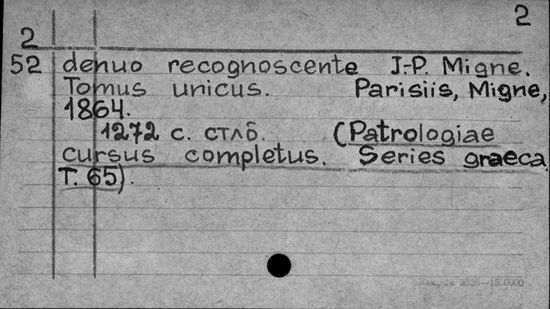 2
2
52 denuo recognoscente J.-P. Migne.
Tomus unicus. Parisiis, Migne,
1864.
1272 с. стлб. (Patrologiae
cursus completus. Series graeca
T. 65).